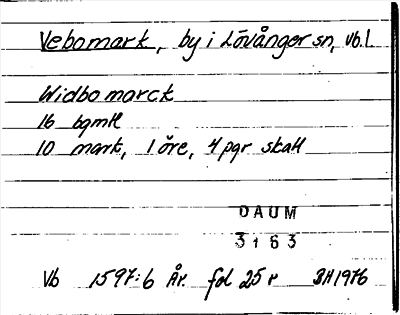 Vebomark, by i Lövånger sn, Vb. l.
Widbomarck
16 bgmtl
10 mark, 1 öre, 4 pgr skatt
DAUM
3163
Vb 1597:6 År. fol 25 r BH 1976